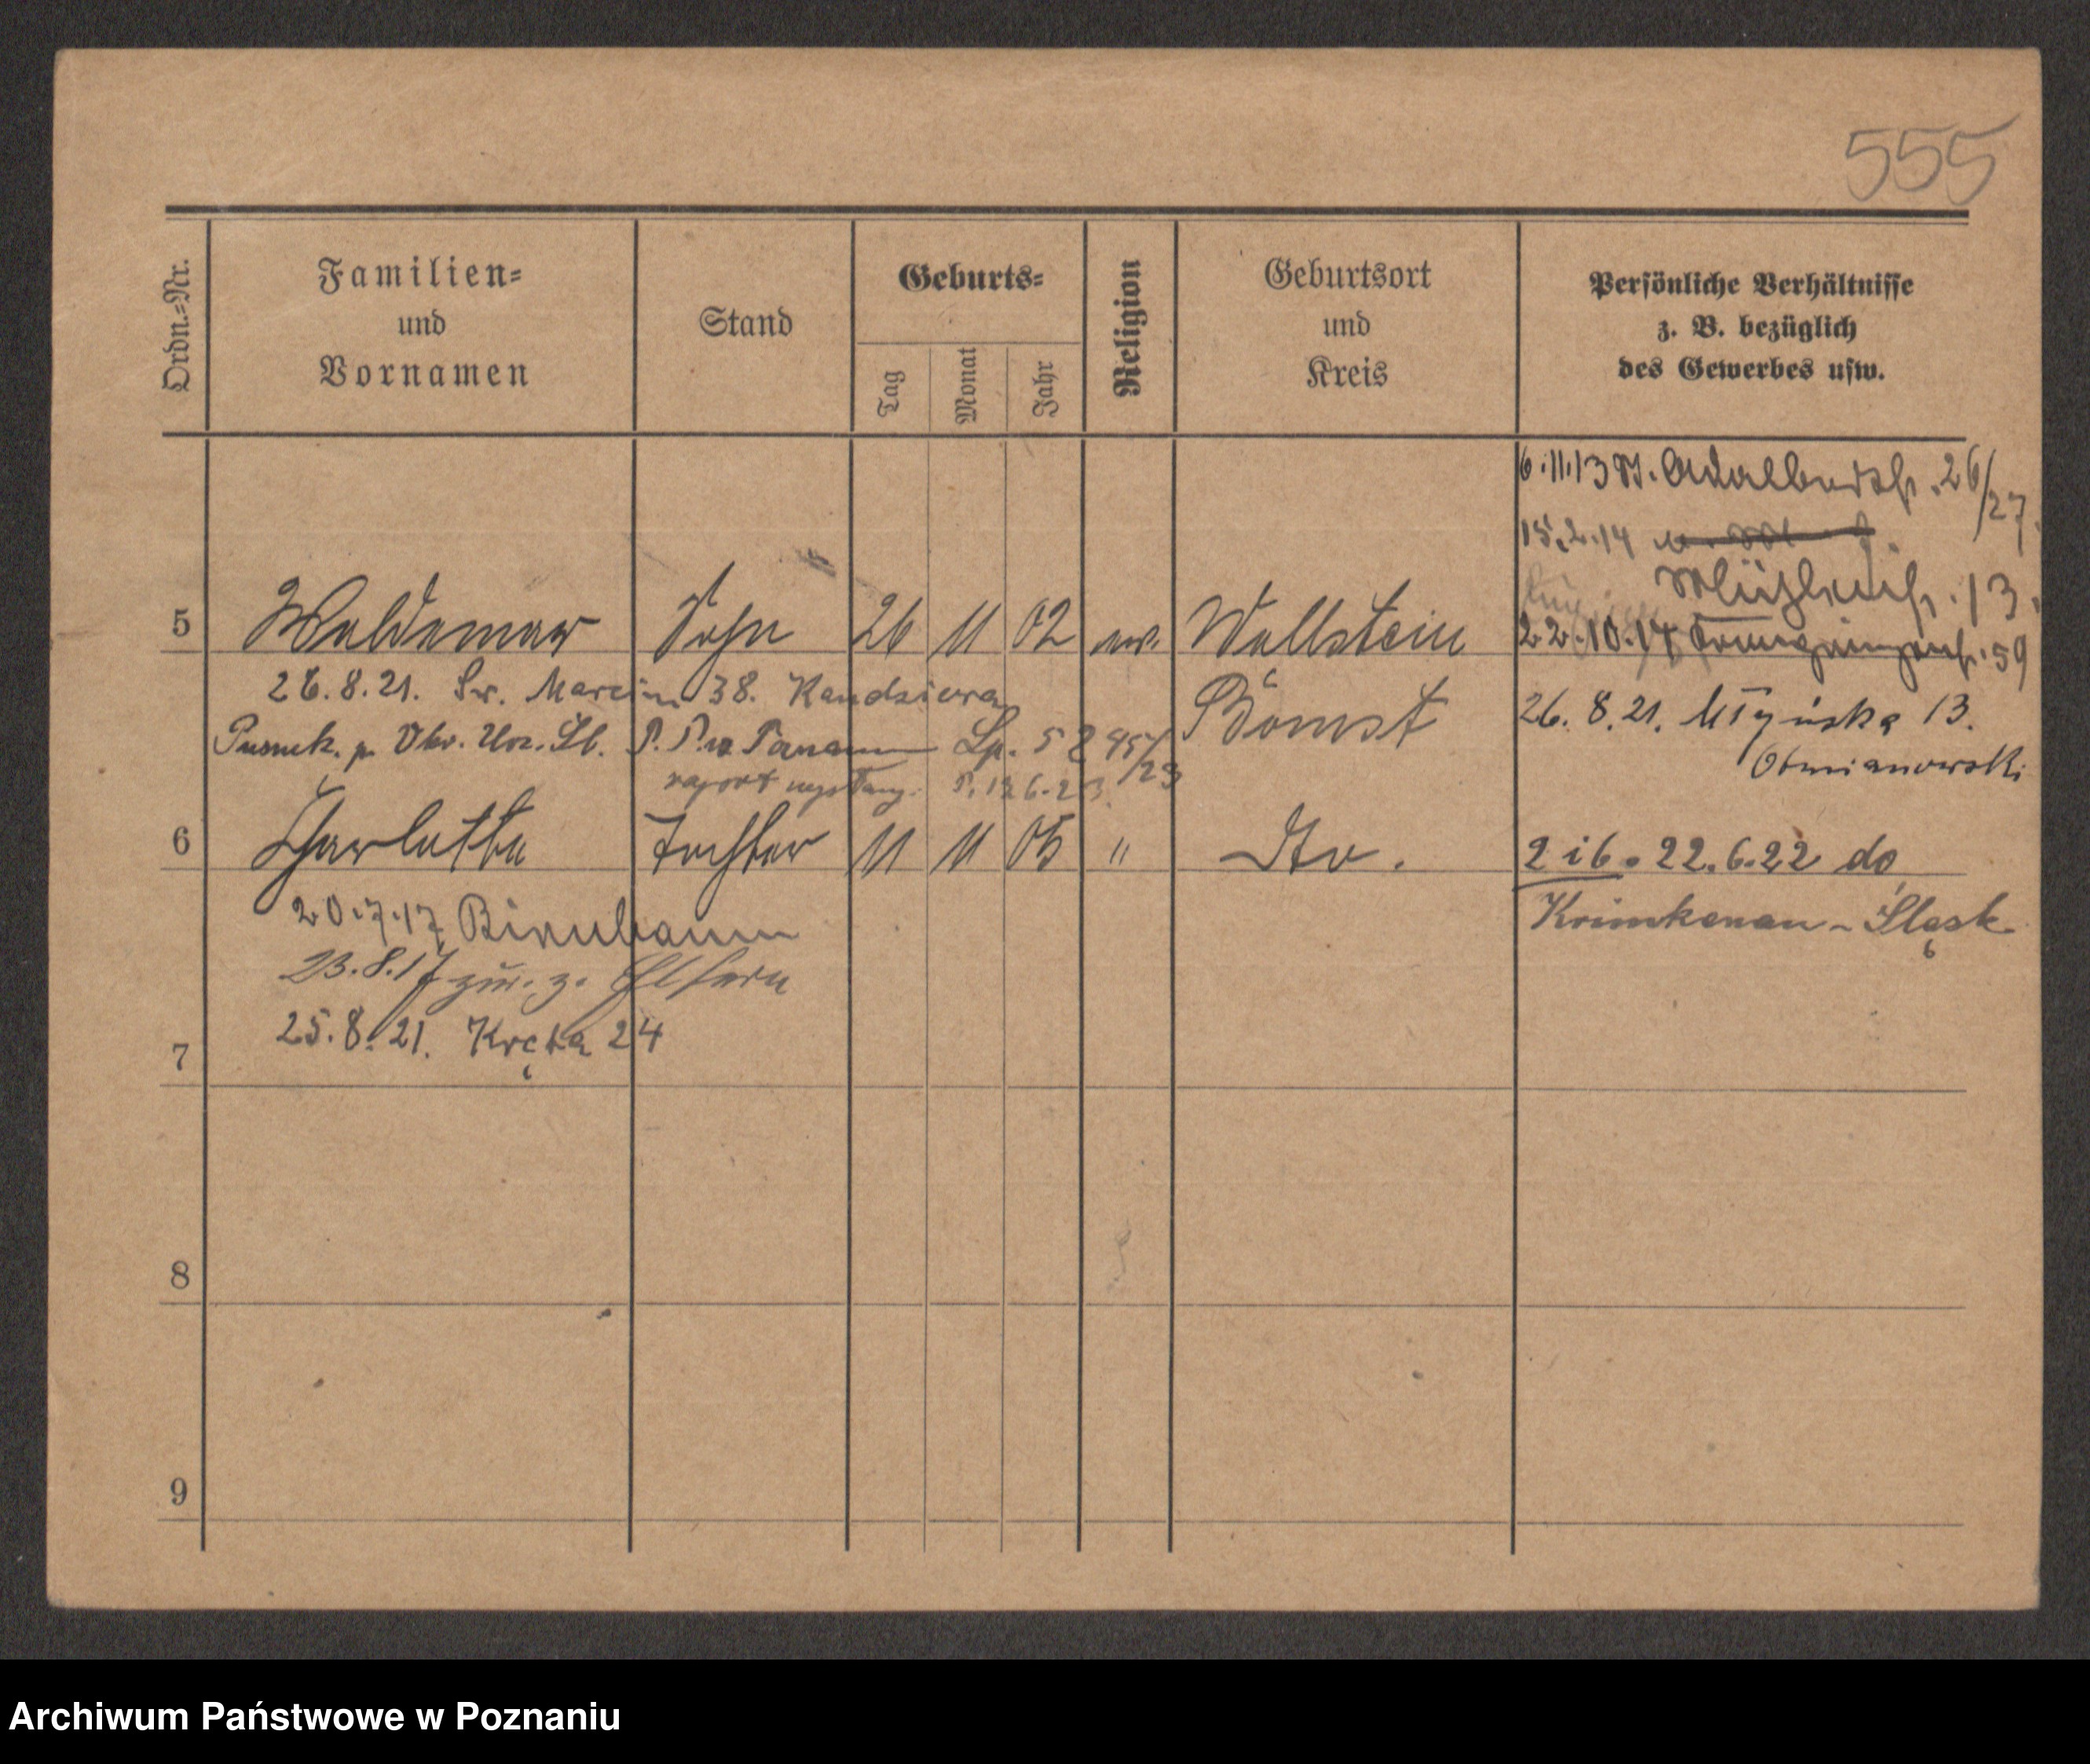 555
Ordn.=Nr.
Familien=
und
Vornamen
Stand
Geburts=
Tag
Monat
Jahr
Religion
Geburtsort
und
Kreis
Persönliche Verhältnisse
z. B. bezüglich
des Gewerbes usw.
6.11.13 St. Adalbertstr. 26/27.
15.2.14
Mühlenstr. 13.
5 Waldemar Sohn 26 11 02 ev. Wollstein
22.10.17 59
26.8.21. Św. Marcin 38. Kandziora
Bomst
26. 8. 21. Młyńska 13.
Obmianowski
Lp. 5 8 95/23
raport
6 Charlotte Tochter 11 11 05 " Do.
2 i 6. 22.6.22 do
Krimkenau - Śląsk
20.7.17 Birnbaum
23.8.17 zur. z. Eltern
25.8.21. Kręta 24
7
8
9
Archiwum Państwowe w Poznaniu